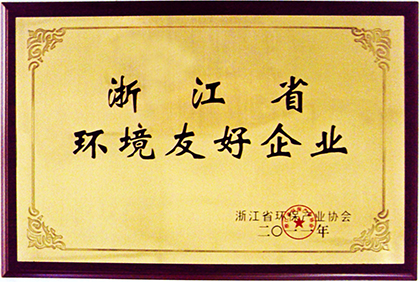 浙江省
环境友好企业
浙江省环保产业协会
二〇一一年